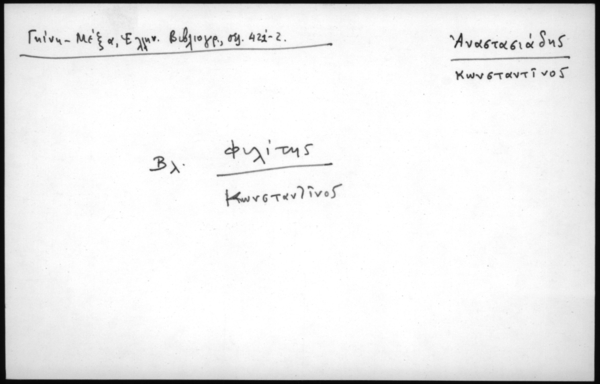 Γκίνη-Μέξα, Ἑλλην. Βιβλιογρ., σημ. 421-2.
Ἀναστασιάδης
Κωνσταντῖνος
Βλ. Φιλίτης
Κωνσταντῖνος